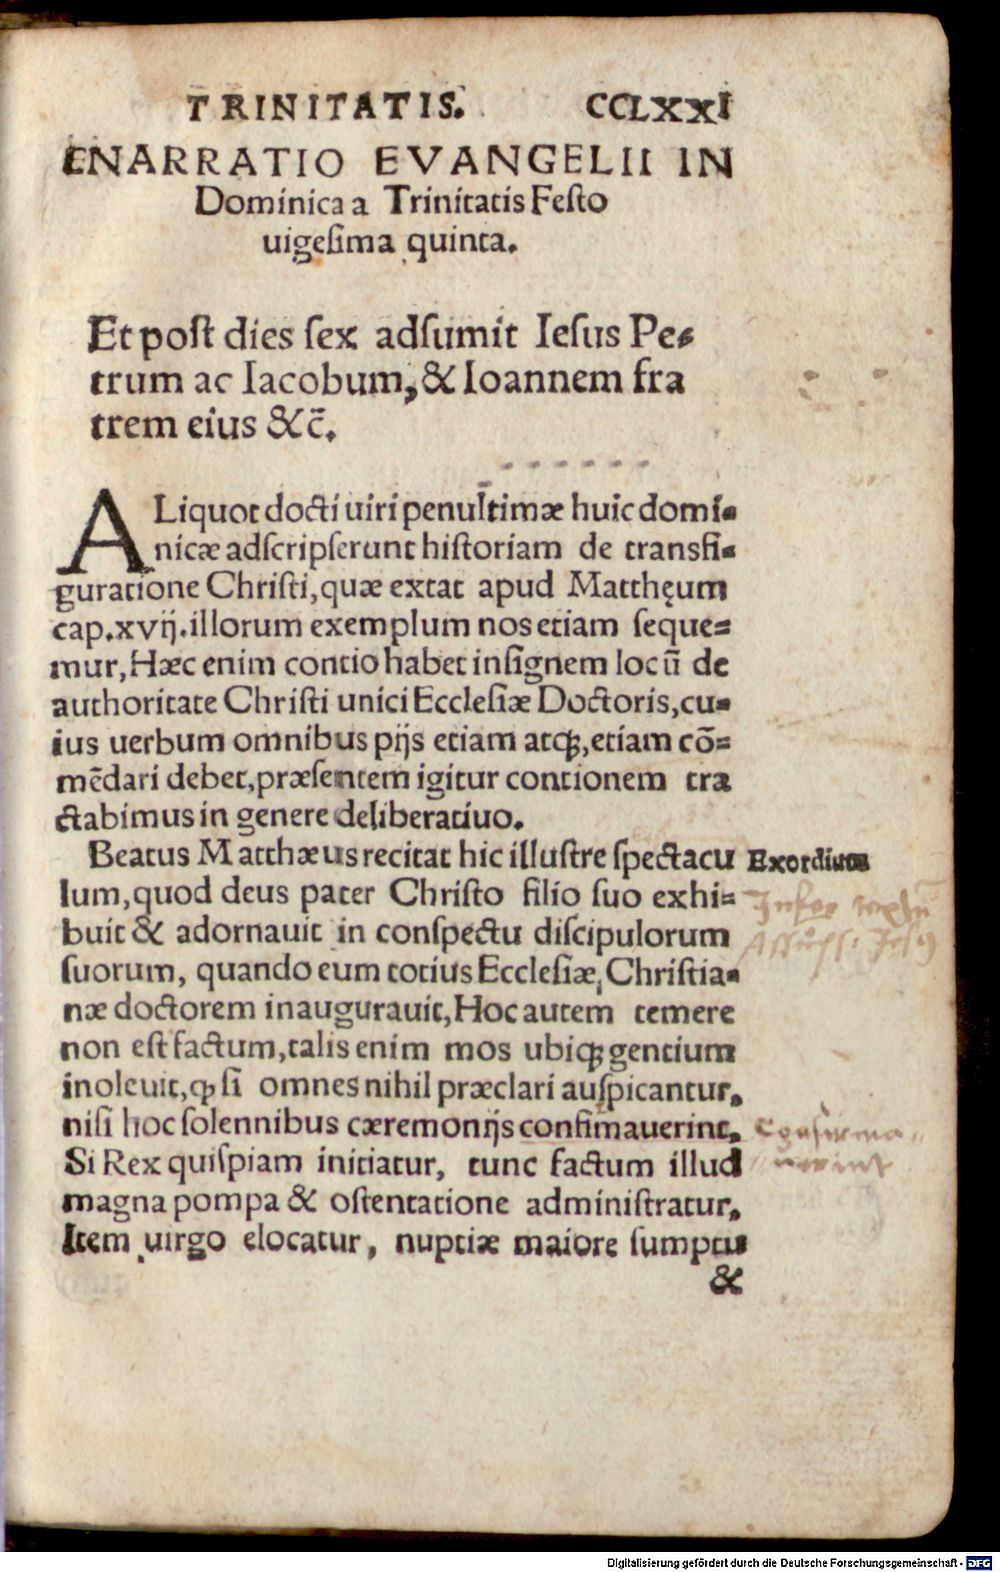 TRINITATIS. CCLXXI
ENARRATIO EVANGELII IN
Dominica a Trinitatis Festo
uigesima quinta.
Et post dies sex adsumit Iesus Pe-
trum ac Iacobum, & Ioannem fra
trem eius &c̄.
ALiquot docti uiri penultimæ huic domi-
nicæ adscripserunt historiam de transfi-
guratione Christi, quæ extat apud Matthęum
cap.xvij.illorum exemplum nos etiam seque-
mur, Hæc enim contio habet insignem locū de
authoritate Christi unici Ecclesiæ Doctoris, cu-
ius uerbum omnibus pijs etiam atqꝫ, etiam cō-
mēdari debet, præsentem igitur contionem tra
ctabimus in genere deliberatiuo.
Beatus Matthæus recitat hic illustre spectacu
Exordium
lum, quod deus pater Christo filio suo exhi-
buit & adornauit in conspectu discipulorum
suorum, quando eum totius Ecclesiæ, Christia-
næ doctorem inaugurauit, Hoc autem temere
non est factum, talis enim mos ubiqꝫ gentium
inoleuit, ꝙ si omnes nihil præclari auspicantur,
nisi hoc solennibus cæremonijs confimauerint,
Confirma-
uerint
Si Rex quispiam initiatur, tunc factum illud
magna pompa & ostentatione administratur,
Item uirgo elocatur, nuptiæ maiore sumptu
&
Digitalisierung gefördert durch die Deutsche Forschungsgemeinschaft - DFG